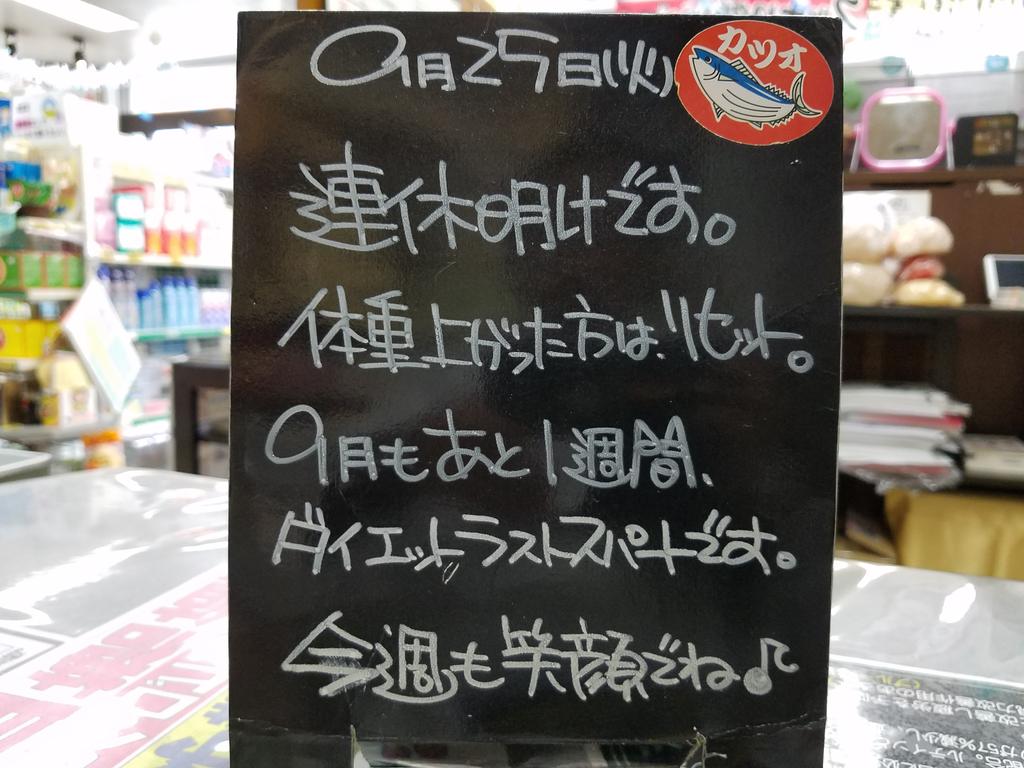 9月25日(火)
カツオ
連休明けです。
体重上がった方は、リセット。
9月もあと1週間、
ダイエットラストスパートです。
今週も笑顔でね♪